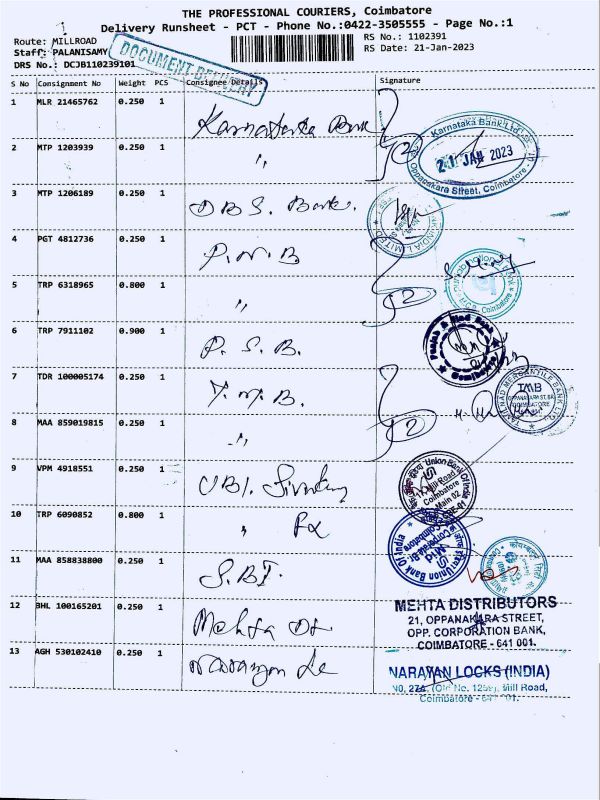 THE PROFESSIONAL COURIERS, Coimbatore
Delivery Runsheet - PCT - Phone No.:0422-3505555 - Page No.:1
Route: MILLROAD
RS No.: 1102391
Staff: PALANISAMY
RS Date: 21-Jan-2023
DRS No.: DCJB110239101
DOCUMENT DELIVERY
S No Consignment No Weight PCS Consignee Details Signature
1 MLR 21465762 0.250 1 Karnataka Bank
2 MTP 1203939 0.250 1 "
2
Karnataka Bank Ltd.
21 JAN 2023
Oppanakara Street, Coimbatore
3 MTP 1206189 0.250 1 DBS. Bank.
4 PGT 4812736 0.250 1 P.N.B
5 TRP 6318965 0.800 1 "
2
6 TRP 7911102 0.900 1 P. S. B.
Punjab & Sind Bank
7 TDR 100005174 0.250 1 T.M.B.
8 MAA 859019815 0.250 1 "
2
TAMILNAD MERCANTILE BANK LTD.
TMB
OPPANAKARA ST. BR
COIMBATORE
9 VPM 4918551 0.250 1 UBI.
Union Bank Of India
Mill Road
Coimbatore
Main 02
10 TRP 6090852 0.800 1 "
Union Bank Of India
11 MAA 858838800 0.250 1 S.B.I.
12 BHL 100165201 0.250 1 Mehta
MEHTA DISTRIBUTORS
21, OPPANAKARA STREET,
OPP. CORPORATION BANK,
COIMBATORE - 641 001.
13 AGH 530102410 0.250 1 Narayan
NARAYAN LOCKS (INDIA)
NO, 27A, (Old No. 1259), Mill Road,
Coimbatore - 641 001.